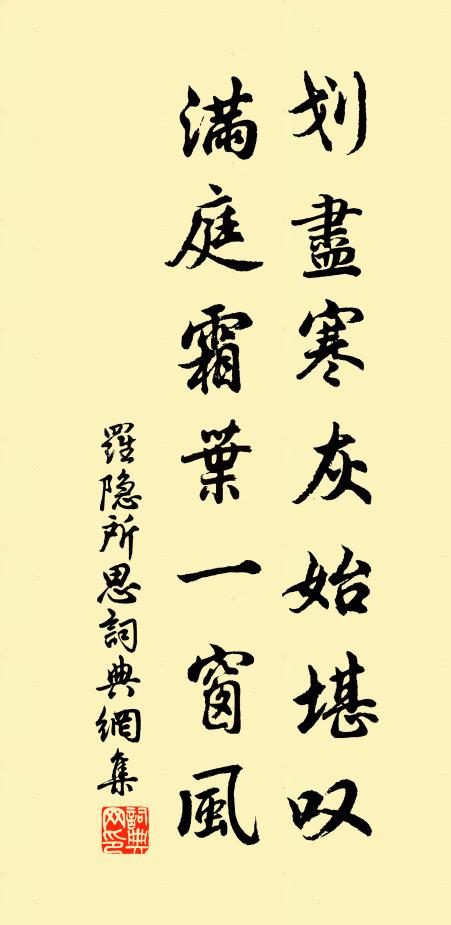 划盡寒灰始堪叹
滿庭霜葉一窗風
羅隐所思詞典網集
詞典网印